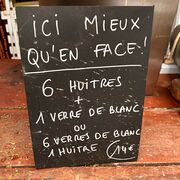 ici MIEUX
QU'EN FACE !
6 HUÎTRES
+
1 VERRE DE BLANC
OU
6 VERRES DE BLANC
1 HUÎTRE 14€